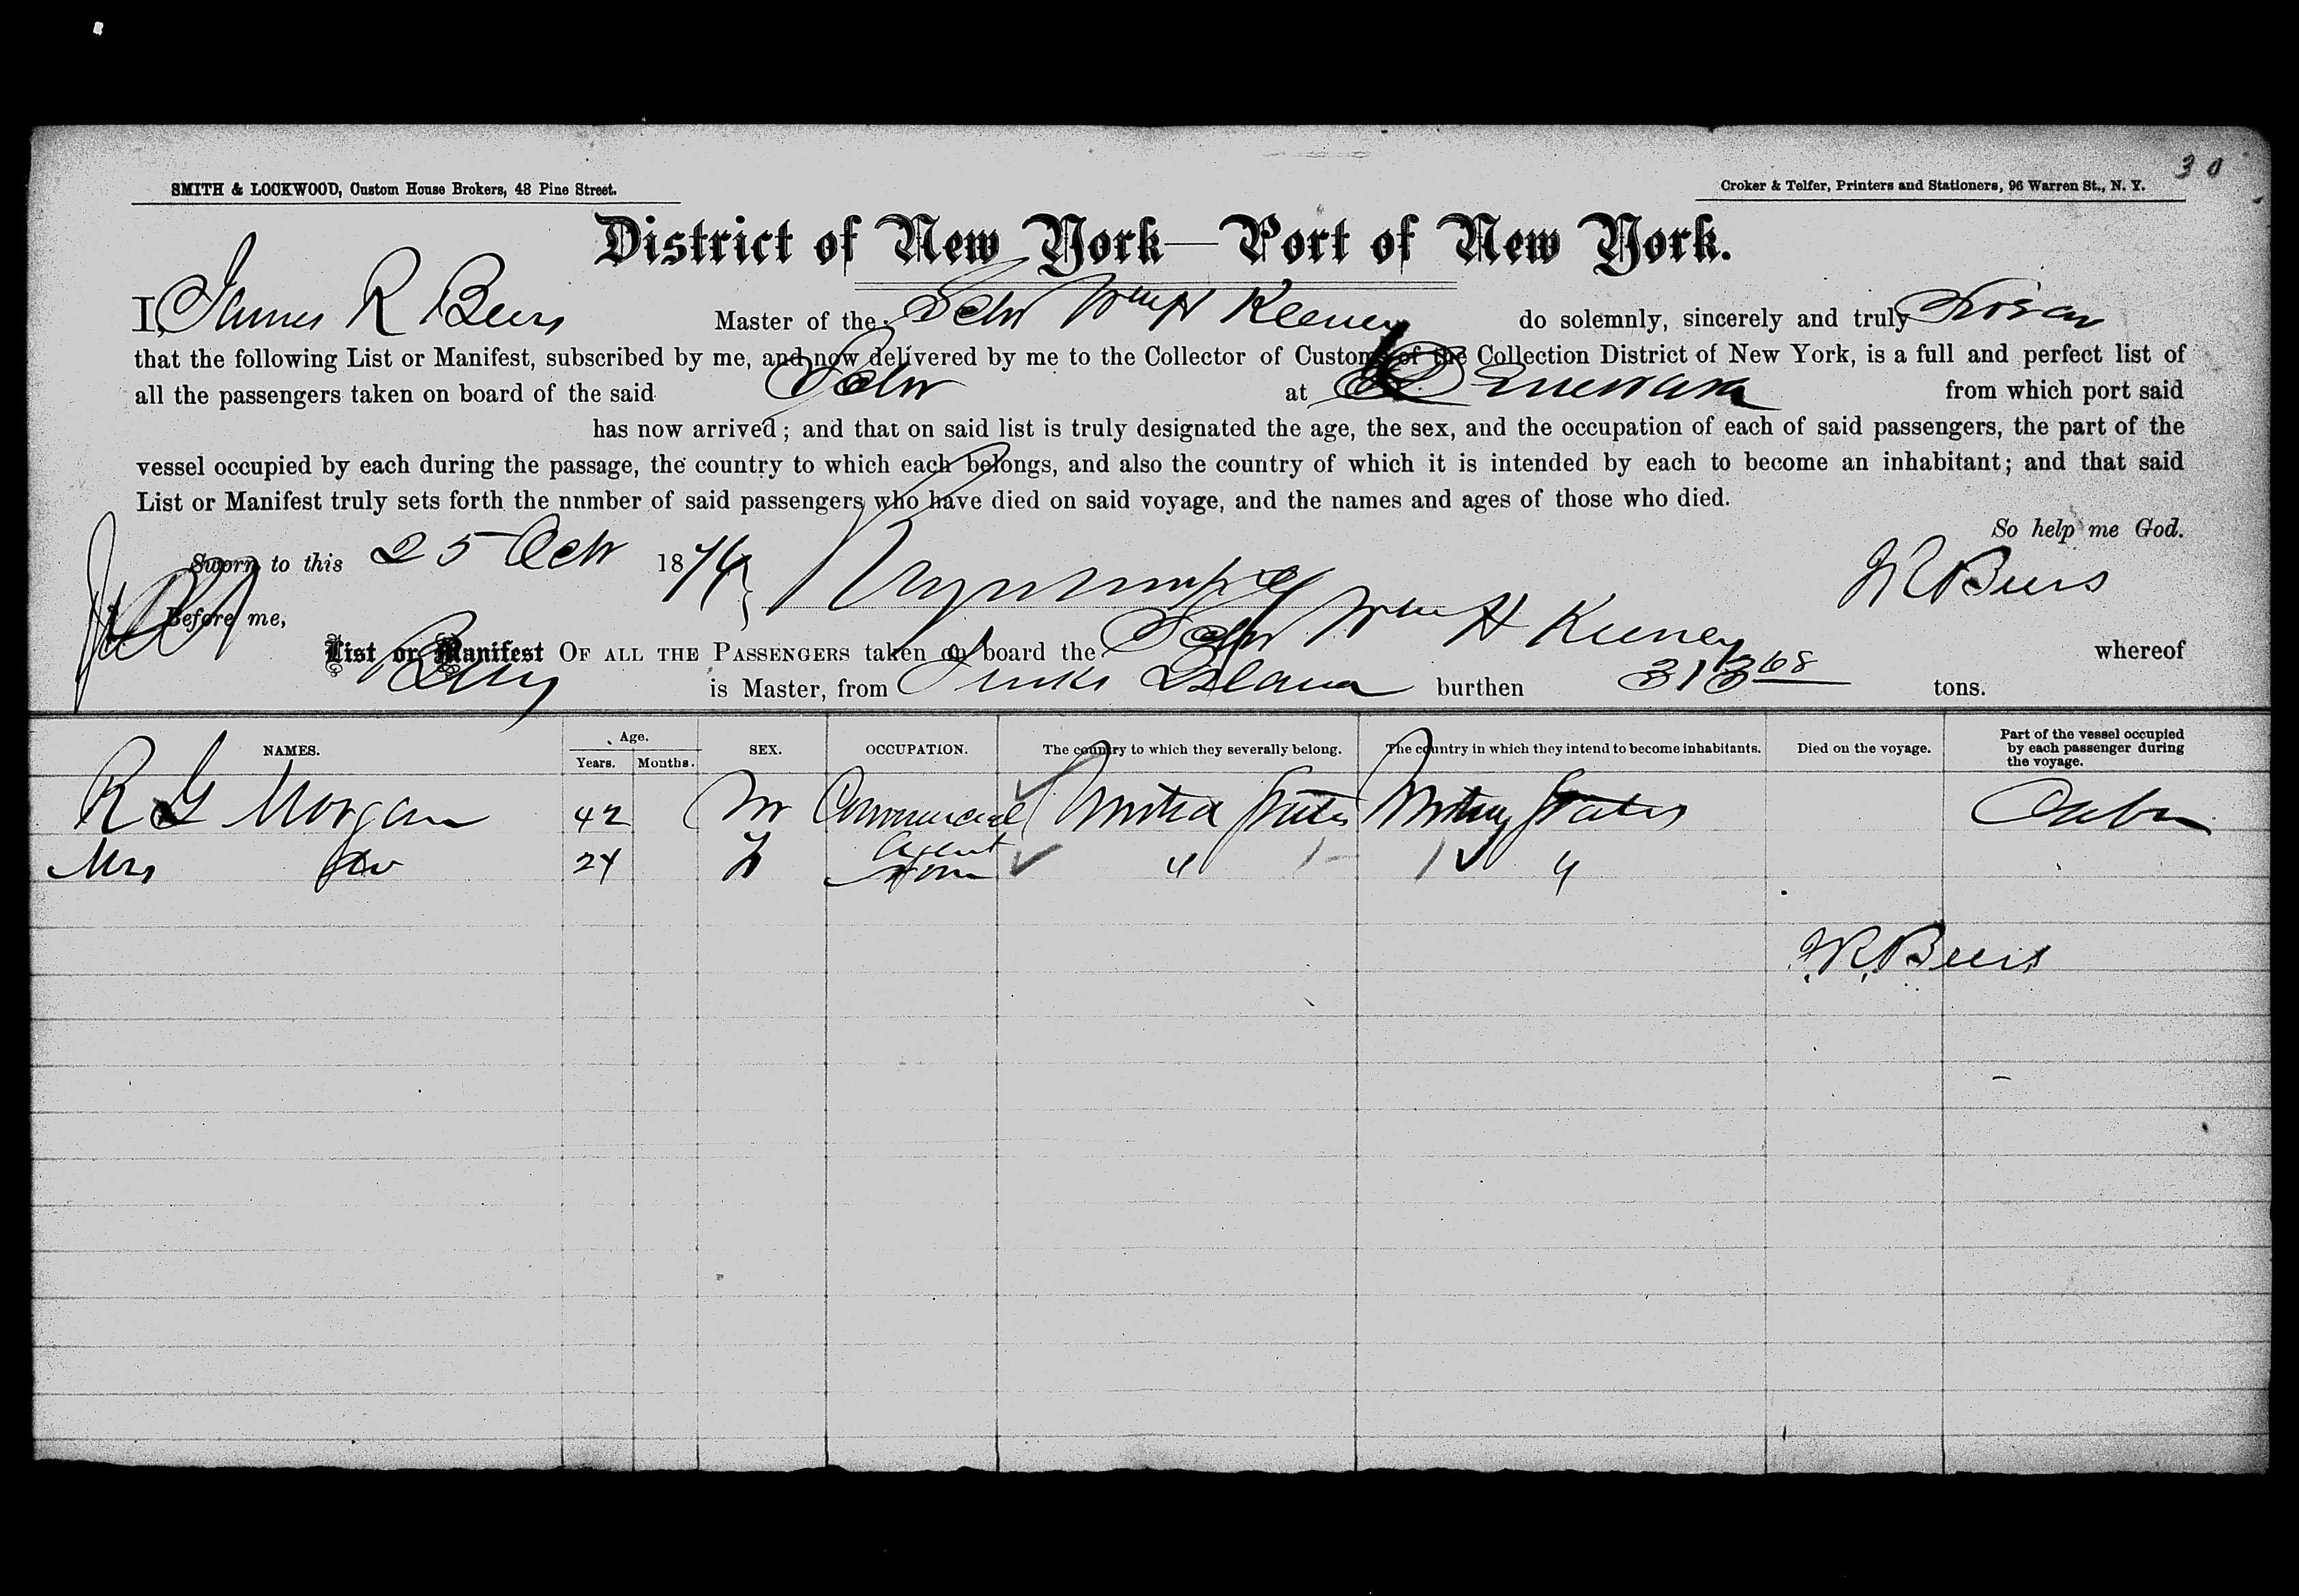 30
SMITH & LOCKWOOD, Custom House Brokers, 48 Pine Street.
Croker & Telfer, Printers and Stationers, 96 Warren St., N. Y.
District of New York—Port of New York.
I, James R Beers Master of the Schr Wm H Keeney do solemnly, sincerely and truly Swear
that the following List or Manifest, subscribed by me, and now delivered by me to the Collector of Customs of the Collection District of New York, is a full and perfect list of
all the passengers taken on board of the said Schr at from which port said
has now arrived; and that on said list is truly designated the age, the sex, and the occupation of each of said passengers, the part of the
vessel occupied by each during the passage, the country to which each belongs, and also the country of which it is intended by each to become an inhabitant; and that said
List or Manifest truly sets forth the nnmber of said passengers who have died on said voyage, and the names and ages of those who died.
So help me God.
Sworn to this 25 Octr 1876
J R Beers
Before me,
List or Manifest OF ALL THE PASSENGERS taken on board the Schr Wm H Keeney whereof
Beers is Master, from Turks Island burthen 313 68 tons.
NAMES. Age. Years. Months. SEX. OCCUPATION. The country to which they severally belong. The country in which they intend to become inhabitants. Died on the voyage. Part of the vessel occupied by each passenger during the voyage.
R G Morgan 42 M Commercial Agent United States United States Cabin
Mrs Do 24 F " "
J R Beers